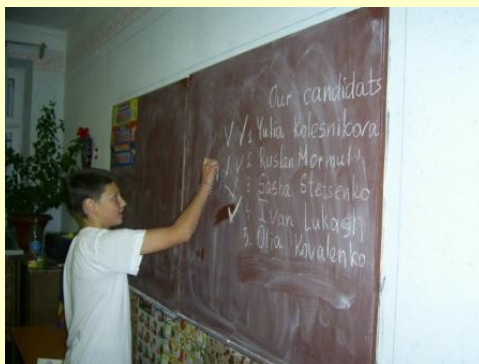 Our candidats
1 Yulia Kolesnikova
2 Ruslan Mormul
3 Sasha Stetsenko
4. Ivan Lukash
5. Olia Kovalenko